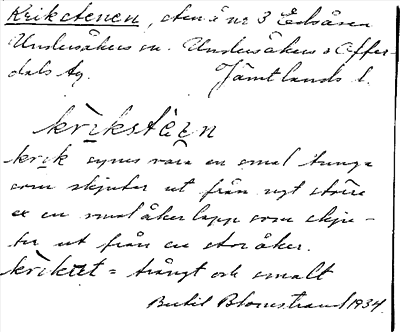 Krikstenen, sten å nr 3 Edsåsen
Undersåkers sn. Undersåkers o Offer-
dals tg. Jämtlands l.
krikstèin
krik synes vara en smal tunga
som skjuter ut från ngt större
ex en smal åkerlapp som skju-
ter ut från en stor åker.
kriket = trångt och smalt
Bertil Blomstrand 1934.